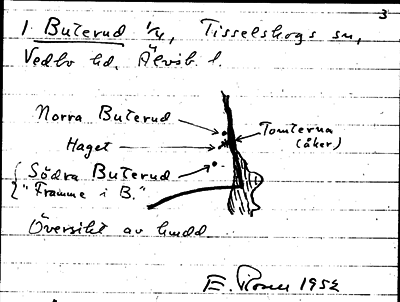 3
1. Buterud 1/4, Tisselskogs sn,
Vedbo hd. Älvsb. l.
Norra Buterud
Tomterna
(åker)
Haget
Södra Buterud
"Framme i B."
Översikt av
E. Rosen 1952